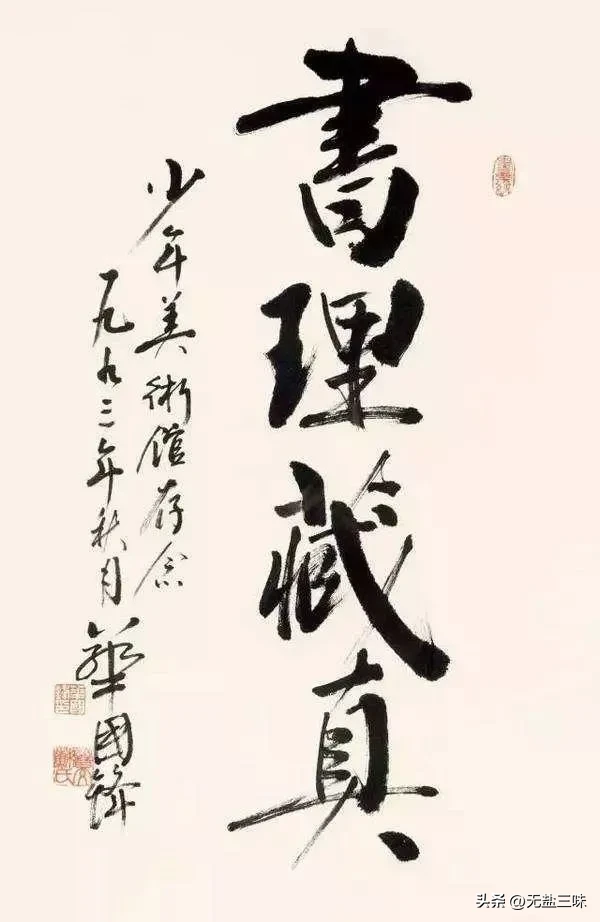 書理藏真
少年美術館存念
一九九三年秋月
華國鋒
头条@无盐三味